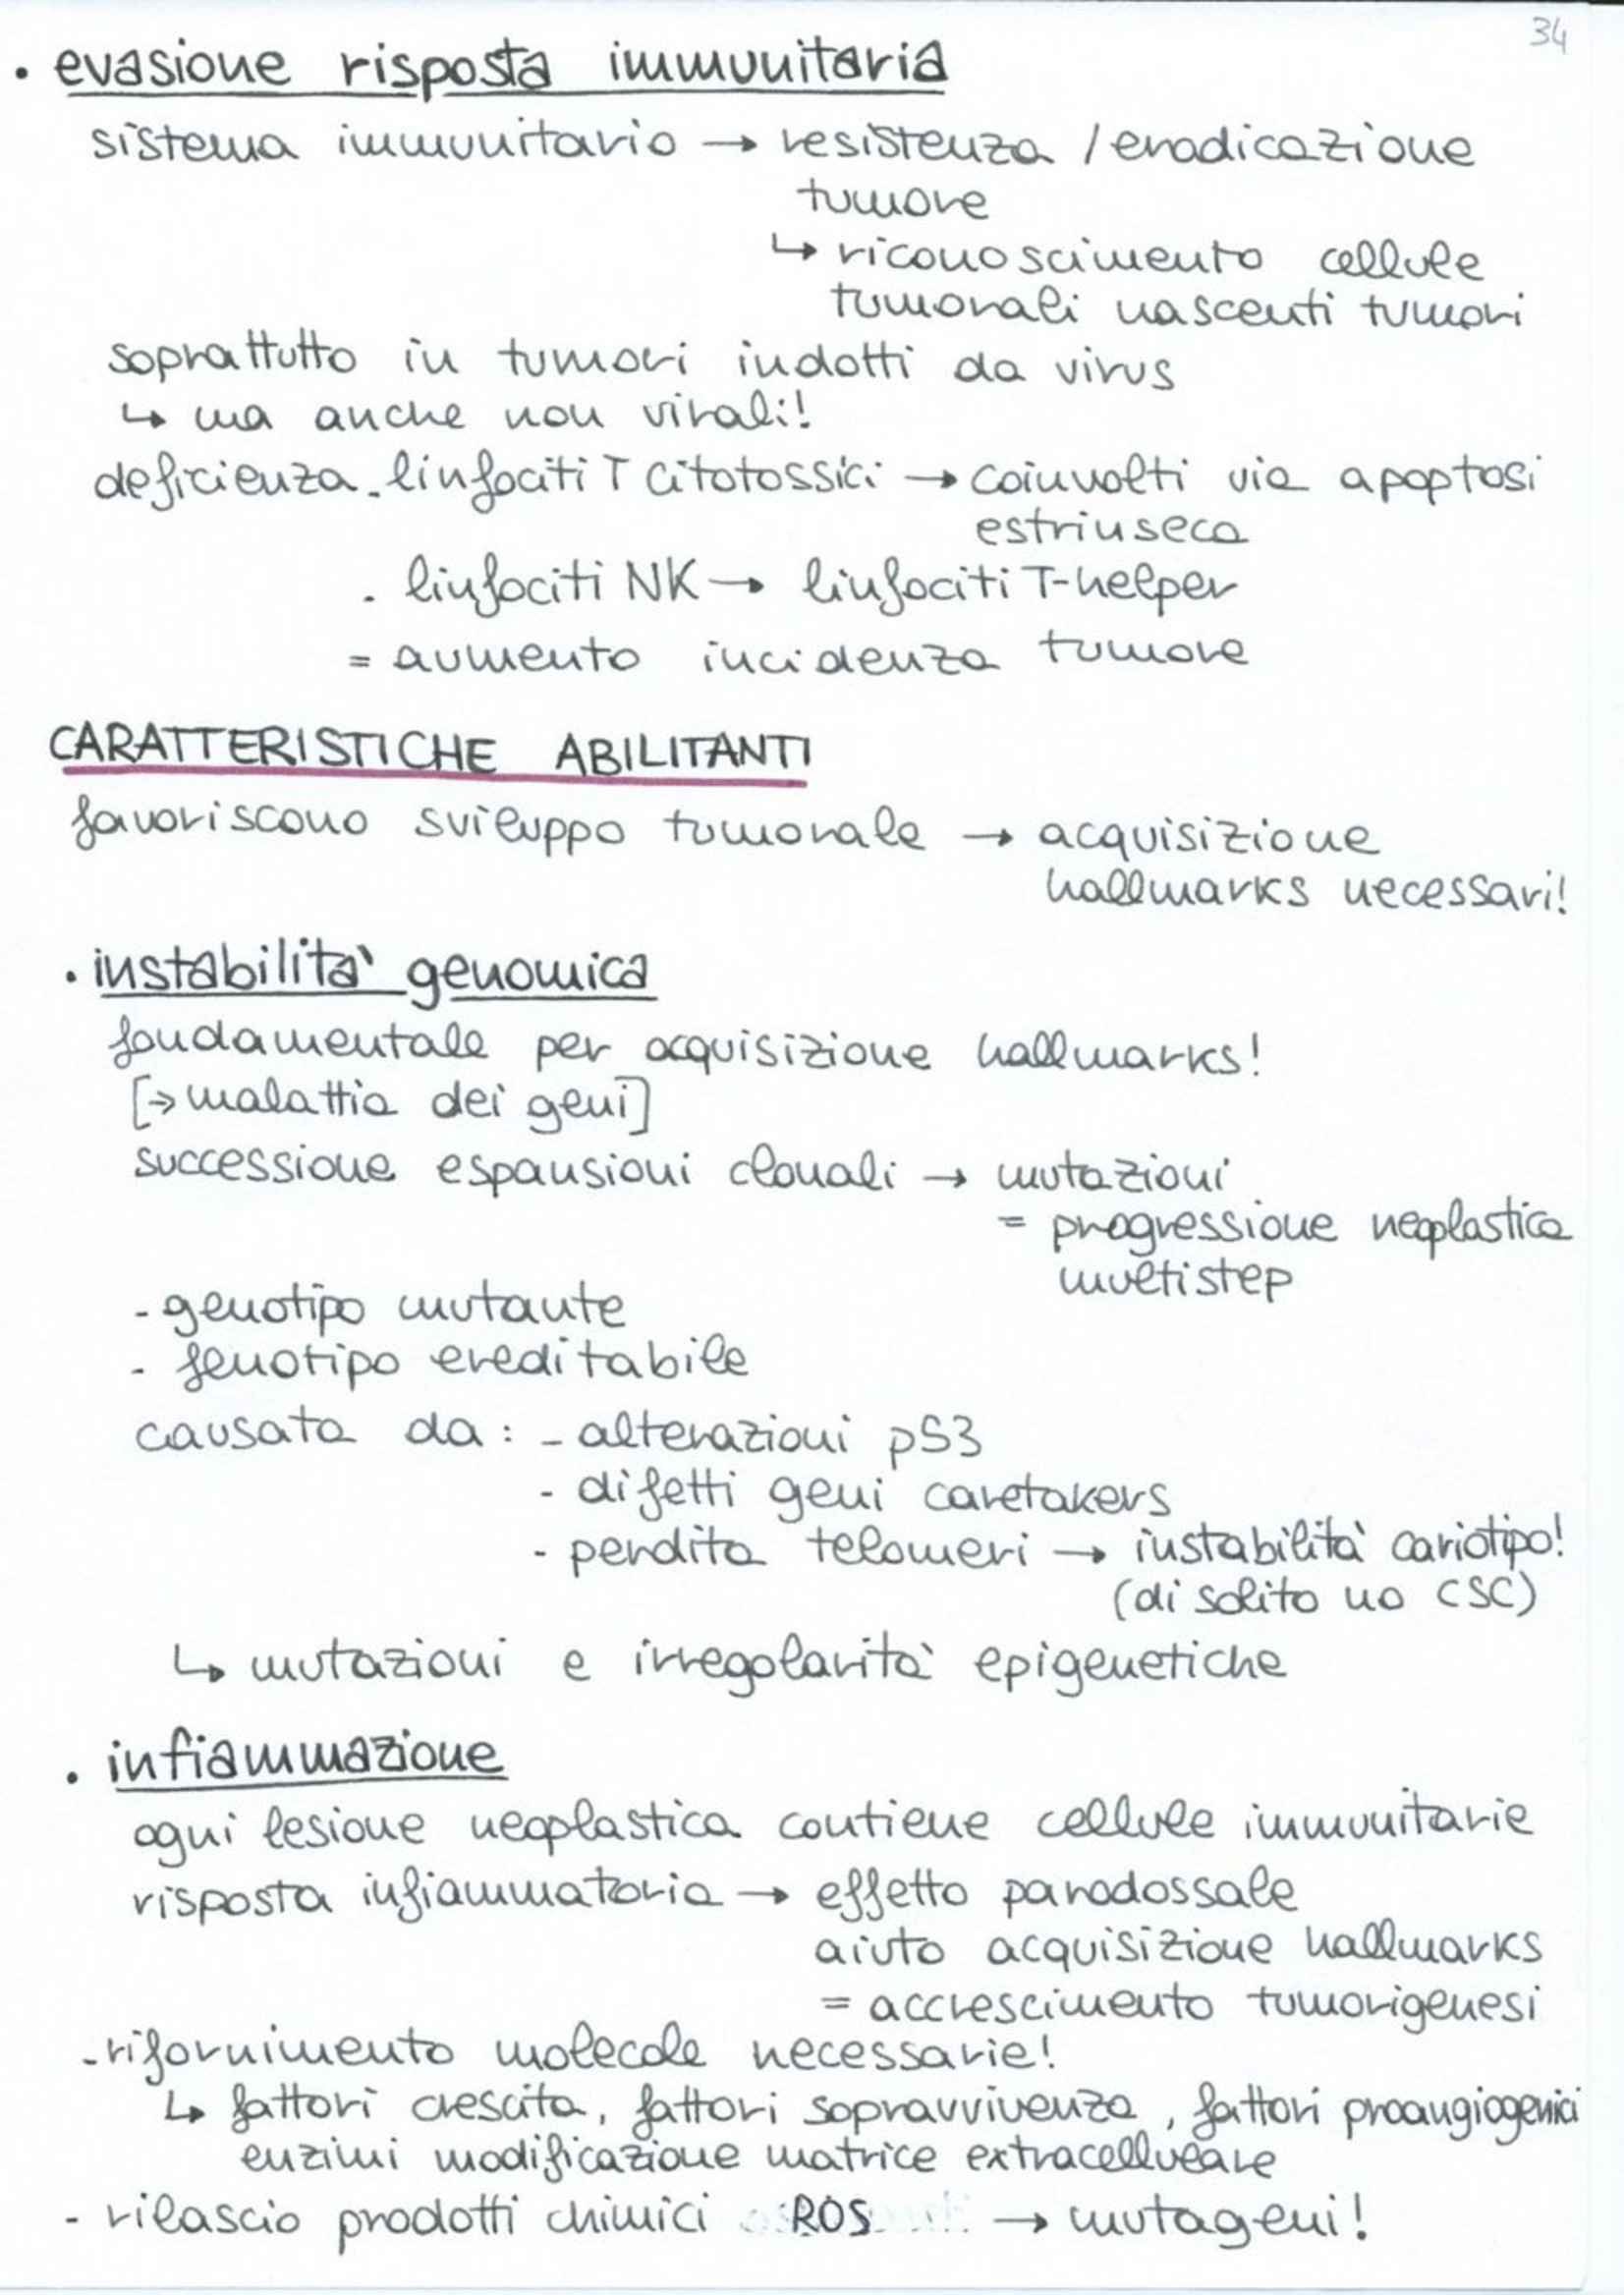 34
. evasione risposta immunitaria
sistema immunitario → resistenza / eradicazione
tumore
↳ riconoscimento cellule
tumorali nascenti tumori
soprattutto in tumori indotti da virus
↳ ma anche non virali!
deficienza . linfociti T citotossici → coinvolti via apoptosi
estrinseca
. linfociti NK → linfociti T-helper
= aumento incidenza tumore
CARATTERISTICHE ABILITANTI
favoriscono sviluppo tumorale → acquisizione
hallmarks necessari!
. instabilità genomica
fondamentale per acquisizione hallmarks!
[→ malattia dei geni]
successione espansioni clonali → mutazioni
= progressione neoplastica
multistep
- genotipo mutante
- fenotipo ereditabile
causata da: - alterazioni p53
- difetti geni caretakers
- perdita telomeri → instabilità cariotipo!
(di solito no CSC)
↳ mutazioni e irregolarità epigenetiche
. infiammazione
ogni lesione neoplastica contiene cellule immunitarie
risposta infiammatoria → effetto paradossale
aiuto acquisizione hallmarks
= accrescimento tumorigenesi
- rifornimento molecole necessarie!
↳ fattori crescita, fattori sopravvivenza, fattori proangiogenici
enzimi modificazione matrice extracellulare
- rilascio prodotti chimici ROS → mutageni!